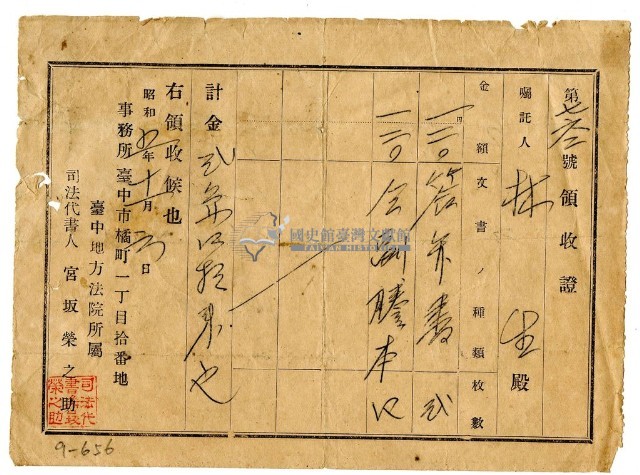 第 號領收證
囑託人 林 生 殿
金額 文書ノ種類 枚數
円
一三〇 答弁書 弍
一三〇 仝 副 謄本
計金 也
右領收候也
昭和五年十一月 日
事務所 臺中市橘町一丁目拾番地
臺中地方法院所屬
司法代書人 宮坂榮之助
司法代
書宮坂
榮之助
國史館臺灣文獻館
TAIWAN HISTORICA
9-656